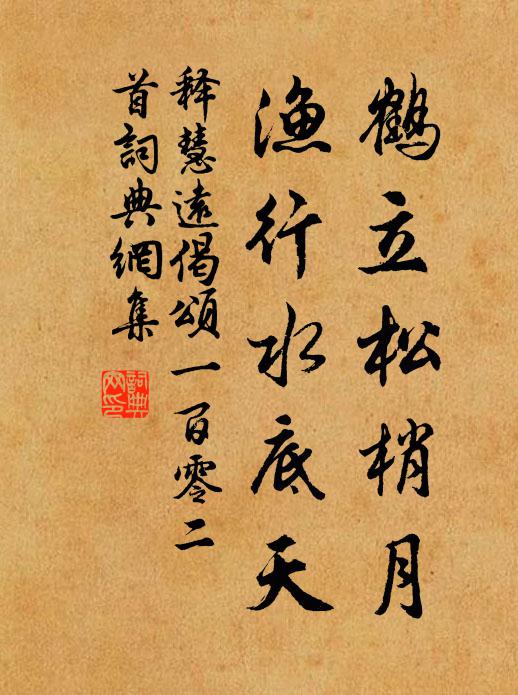 鶴立松梢月
漁行水底天
释慧遠偈頌一百零二
首詞典網集
詞典网印